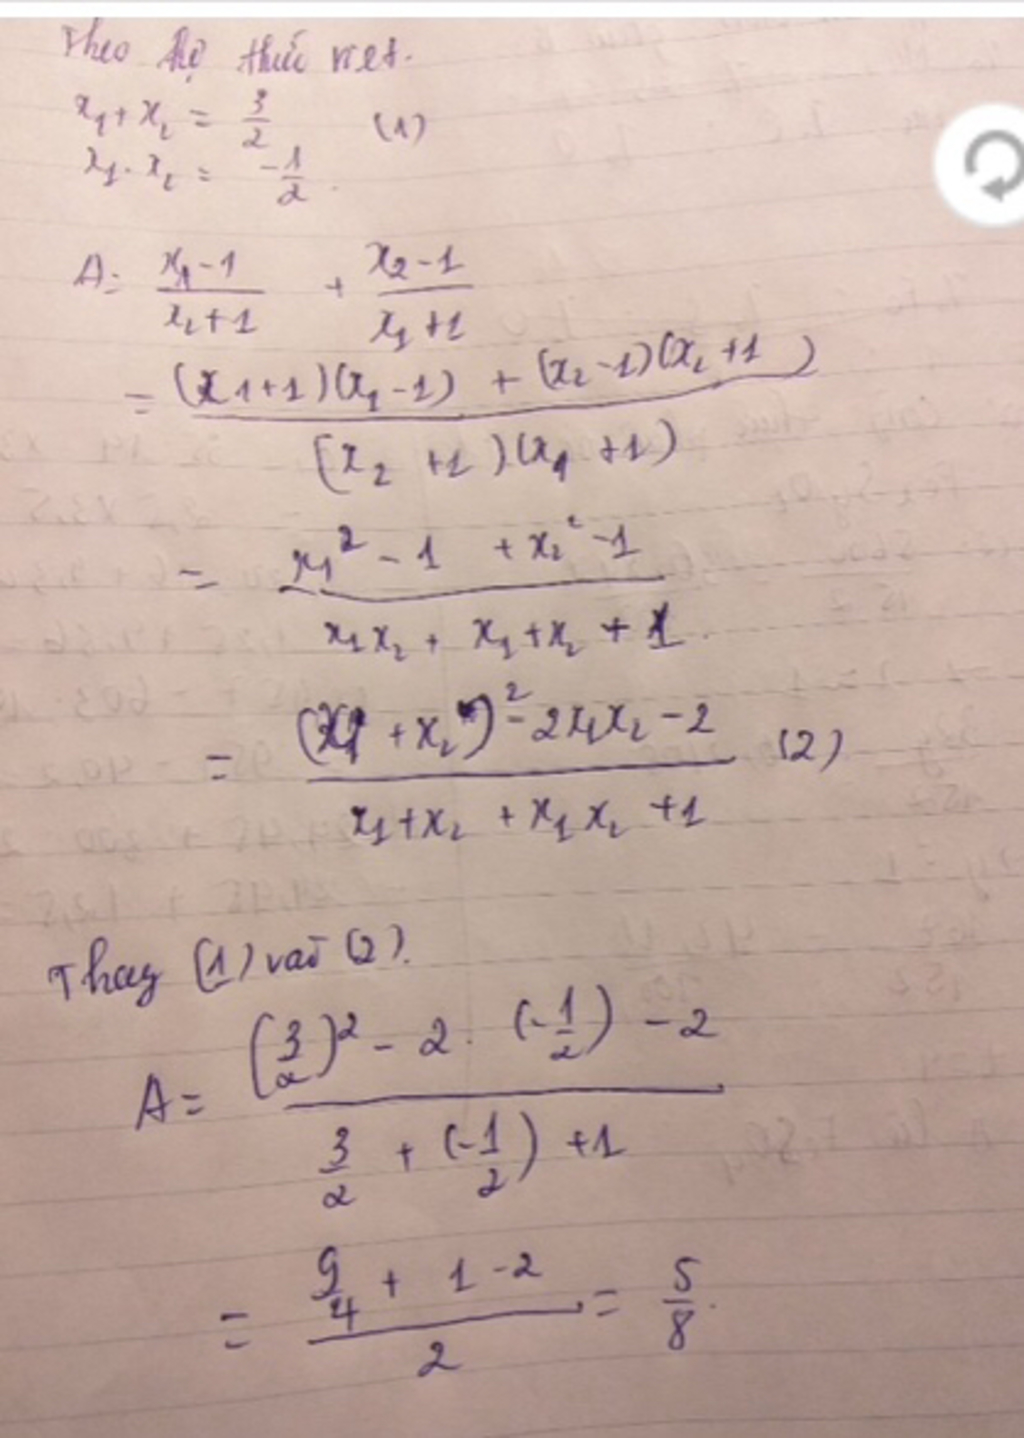 Theo hệ thức viet.
x₁ + x₂ = 3/2 (1)
x₁ . x₂ = -1/2 .
A = (x₁ - 1)/(x₂ + 1) + (x₂ - 1)/(x₁ + 1)
= ((x1 + 1)(x₁ - 1) + (x₂ - 1)(x₂ + 1))/((x₂ + 1)(x₁ + 1))
= (x₁² - 1 + x₂² - 1)/(x₁x₂ + x₁ + x₂ + 1).
= ((x₁ + x₂)² - 2x₁x₂ - 2)/(x₁ + x₂ + x₁x₂ + 1) (2)
Thay (1) vào (2).
A = ((3/2)² - 2 . (-1/2) - 2)/(3/2 + (-1/2) + 1)
= (9/4 + 1 - 2)/2 = 5/8.